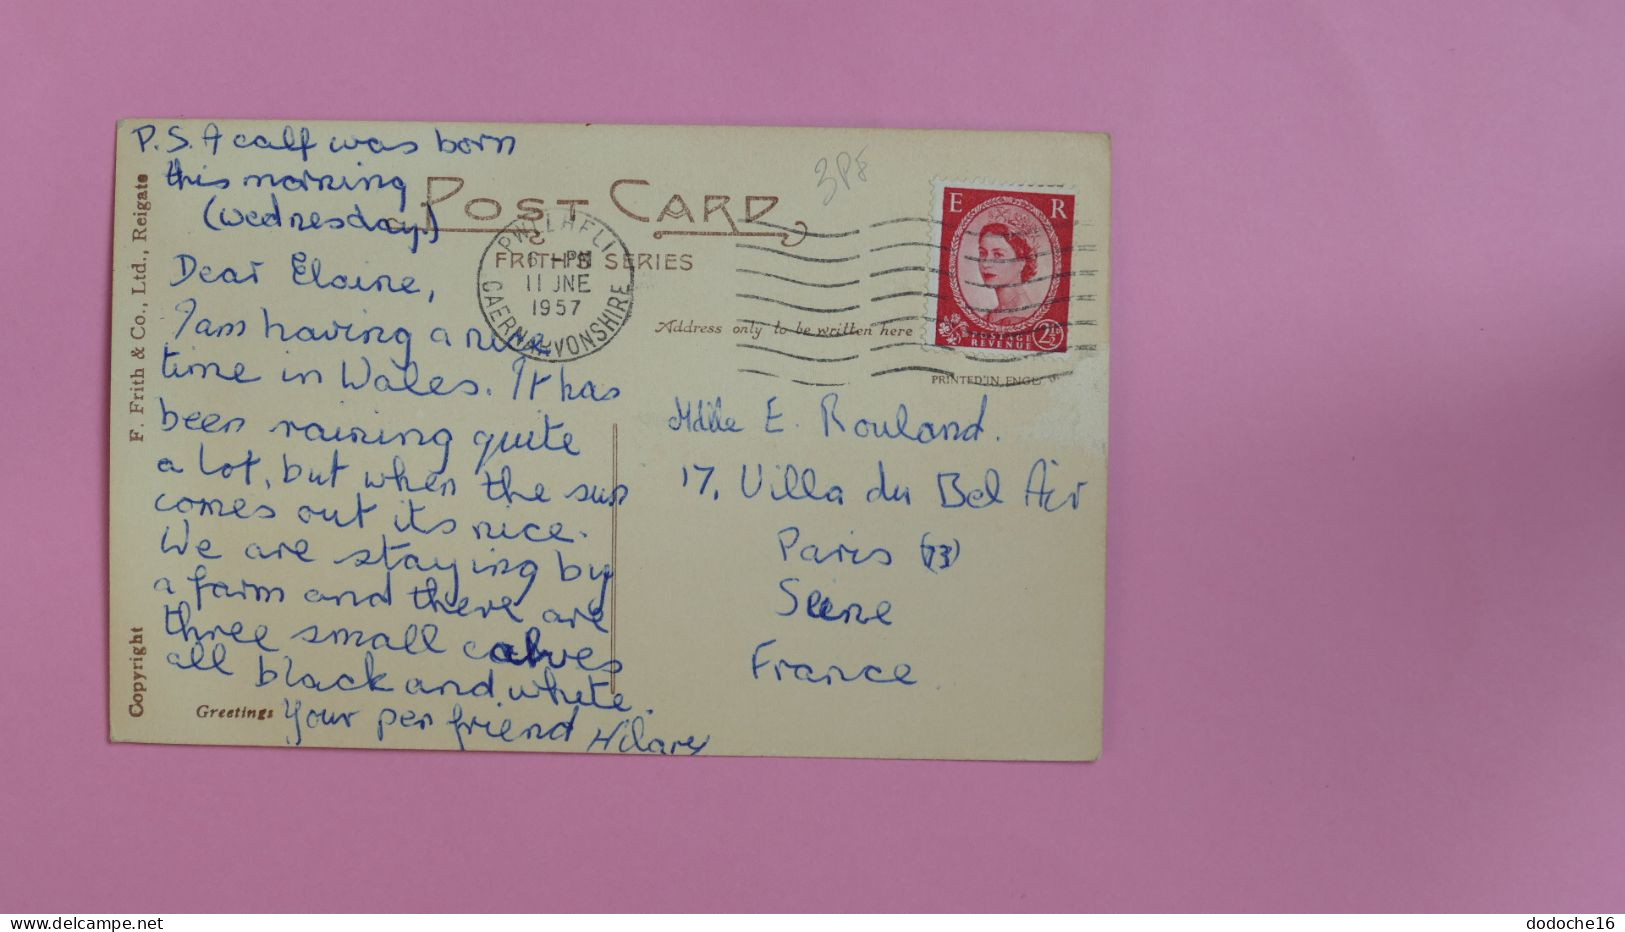 P.S. A calf was born
this morning
(Wednesday)
POST CARD
3P8
E R
POSTAGE
REVENUE
2½D
PWLLHELI
6 - PM
11 JNE
1957
CAERNARVONSHIRE
FRITH'S SERIES
Address only to be written here
PRINTED IN ENGL
Dear Elaine,
I am having a nice
time in Wales. It has
been raining quite
a lot, but when the sun
comes out its nice.
We are staying by
a farm and there are
three small calves
all black and white.
Your pen friend Hilary
Mdlle E. Rouland.
17, Villa du Bel Air
Paris (13)
Seine
France
F. Frith & Co., Ltd., Reigate
Copyright
Greetings
dodoche16